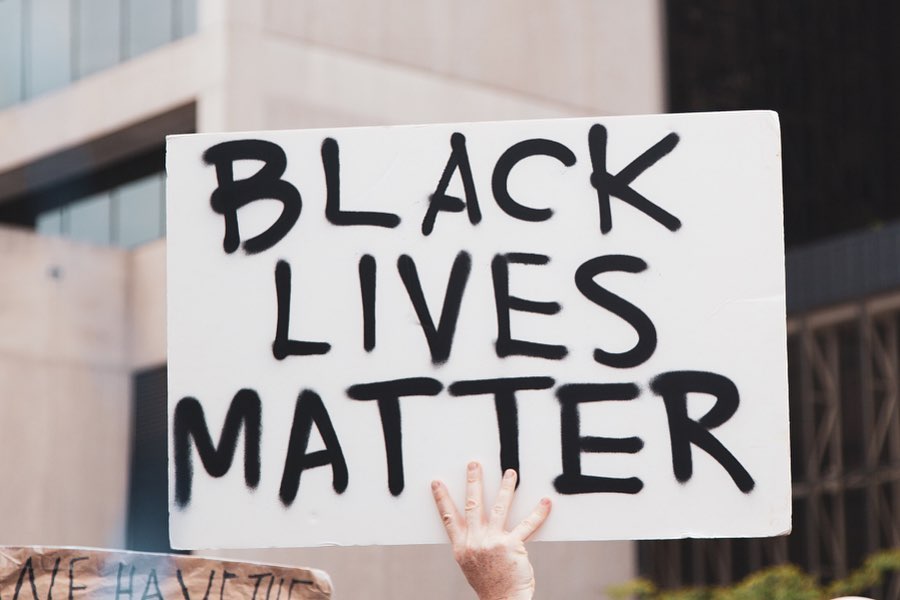 BLACK
LIVES
MATTER
HAVE